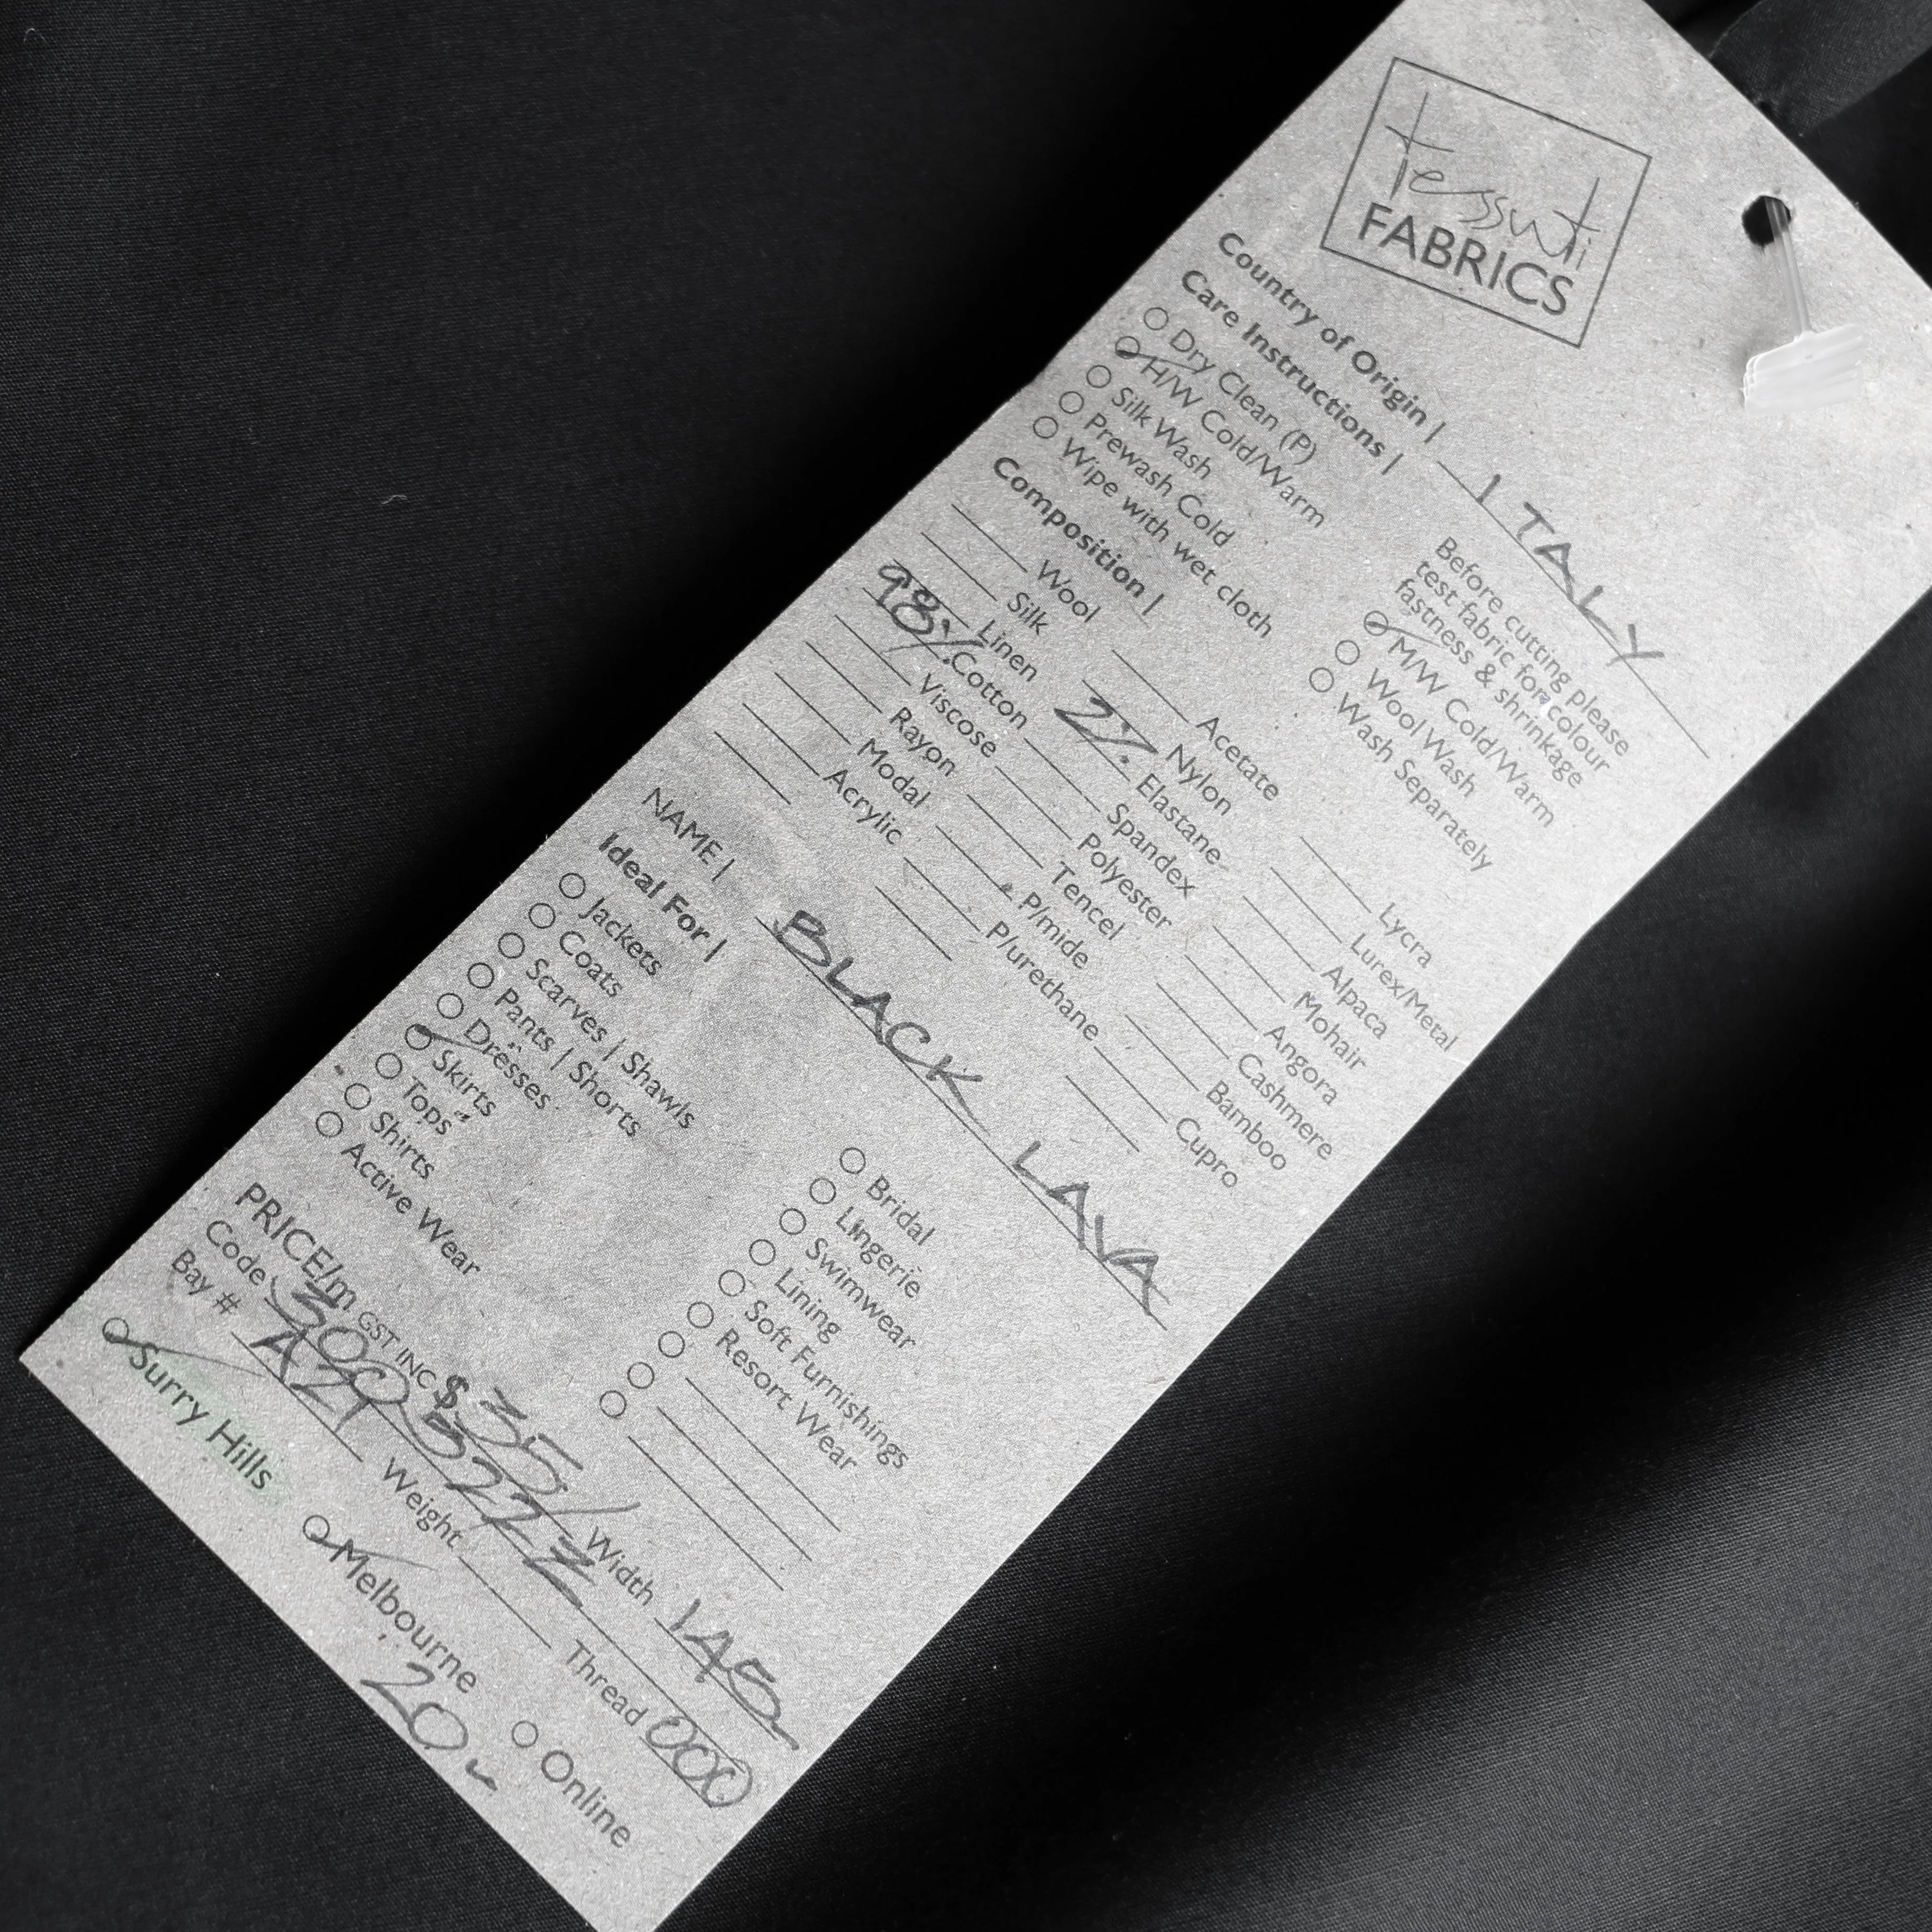 tessuti
FABRICS
Country of Origin | ITALY
Care Instructions |
Dry Clean (P)
H/W Cold/Warm
Silk Wash
Prewash Cold
Wipe with wet cloth
Before cutting please
test fabric for colour
fastness & shrinkage
M/W Cold/Warm
Wool Wash
Wash Separately
Composition |
Wool
Silk
Linen
98% Cotton
Viscose
Rayon
Modal
Acrylic
Acetate
Nylon
2% Elastane
Spandex
Polyester
Tencel
P/mide
P/urethane
Lycra
Lurex/Metal
Alpaca
Mohair
Angora
Cashmere
Bamboo
Cupro
NAME | BLACK LAVA
Ideal For |
Jackets
Coats
Scarves | Shawls
Pants | Shorts
Dresses
Skirts
Tops
Shirts
Active Wear
Bridal
Lingerie
Swimwear
Lining
Soft Furnishings
Resort Wear
PRICE/m GST INC $35/ Width 145
Code 3005222
Bay # A21 Weight Thread 000
Surry Hills Melbourne Online
20